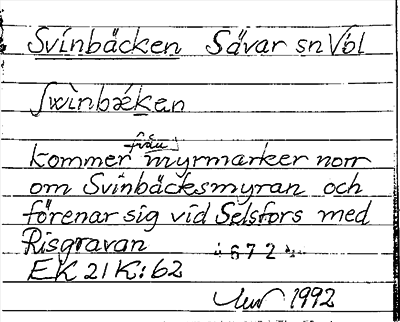 Svinbäcken Sävar sn Vbl
från
kommer myrmarker norr
om Svinbäcksmyran och
förenar sig vid Selsfors med
Risgravan 4672
EK 21K:62
1992